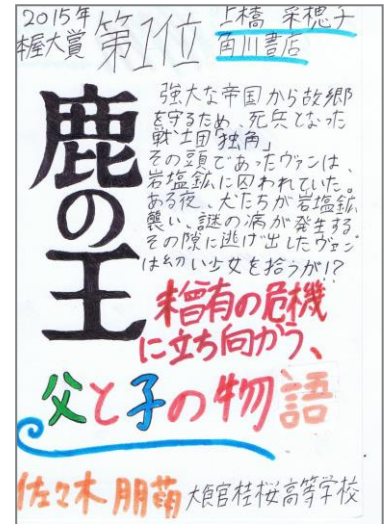 2015年
本屋大賞 第1位 上橋 菜穂子
角川書店
鹿の王
強大な帝国から故郷
を守るため、死兵となった
戦士団「独角」
その頭であったヴァンは、
岩塩鉱に囚われていた。
ある夜、犬たちが岩塩鉱
襲い、謎の病が発生する。
その隙に逃げ出したヴァン
は幼い少女を拾うが!?
未曾有の危機
に立ち向かう、
父と子の物語
佐々木 朋萌 大館桂桜高等学校